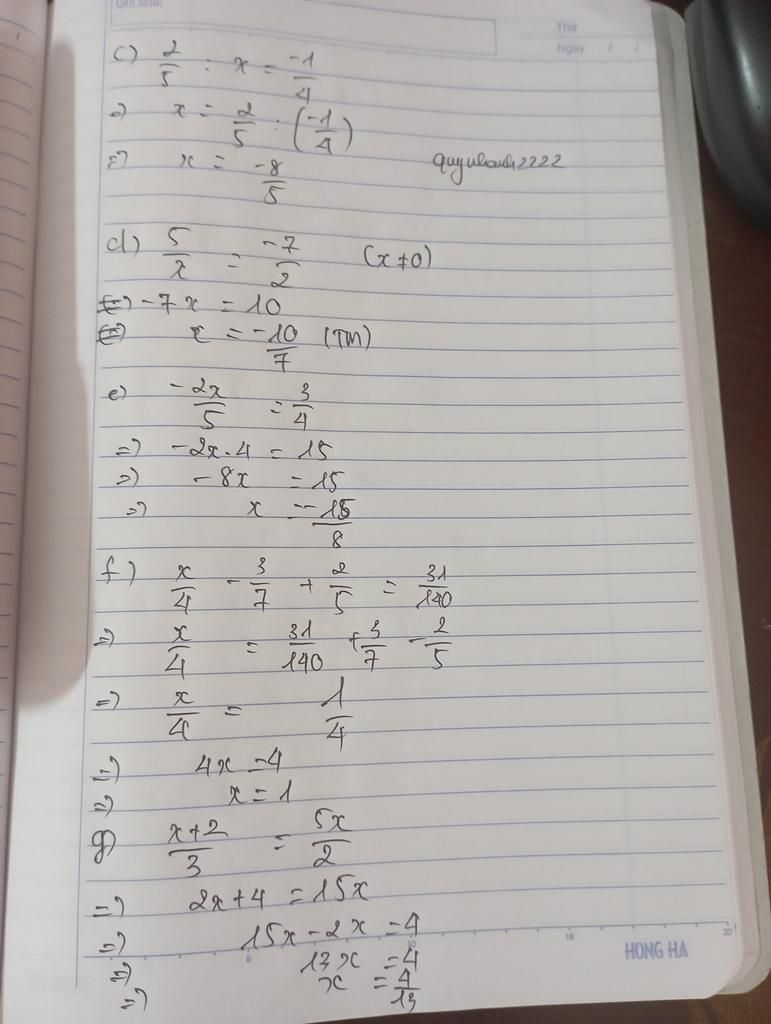 Thứ
Ngày / /
c) 2/5 : x = -1/4
=> x = 2/5 : (-1/4)
=> x = -8/5
quynhanh2222
d) 5/x = -7/2 (x≠0)
<=> -7x = 10
<=> x = -10/7 (TM)
e) -2x/5 = 3/4
=> -2x.4 = 15
=> -8x = 15
=> x = -15/8
f) x/4 - 3/7 + 2/5 = 31/140
=> x/4 = 31/140 + 3/7 - 2/5
=> x/4 = 1/4
=> 4x = 4
=> x = 1
g) x+2/3 = 5x/2
=> 2x+4 = 15x
=> 15x - 2x = 4
=> 13x = 4
=> x = 4/13
5 10 15 20
HONG HA